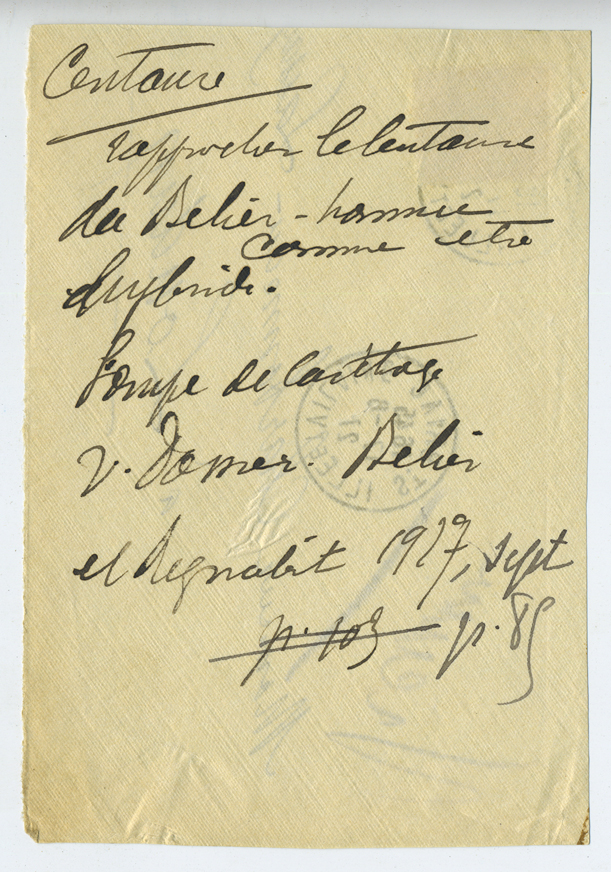 Centaure
rapprocher le Centaure
du Belier-homme
comme etre
hybride.
Lampe de Carthage
v. Dossier. Belier
et Regnabit 1927, sept
p. 103 p. 89